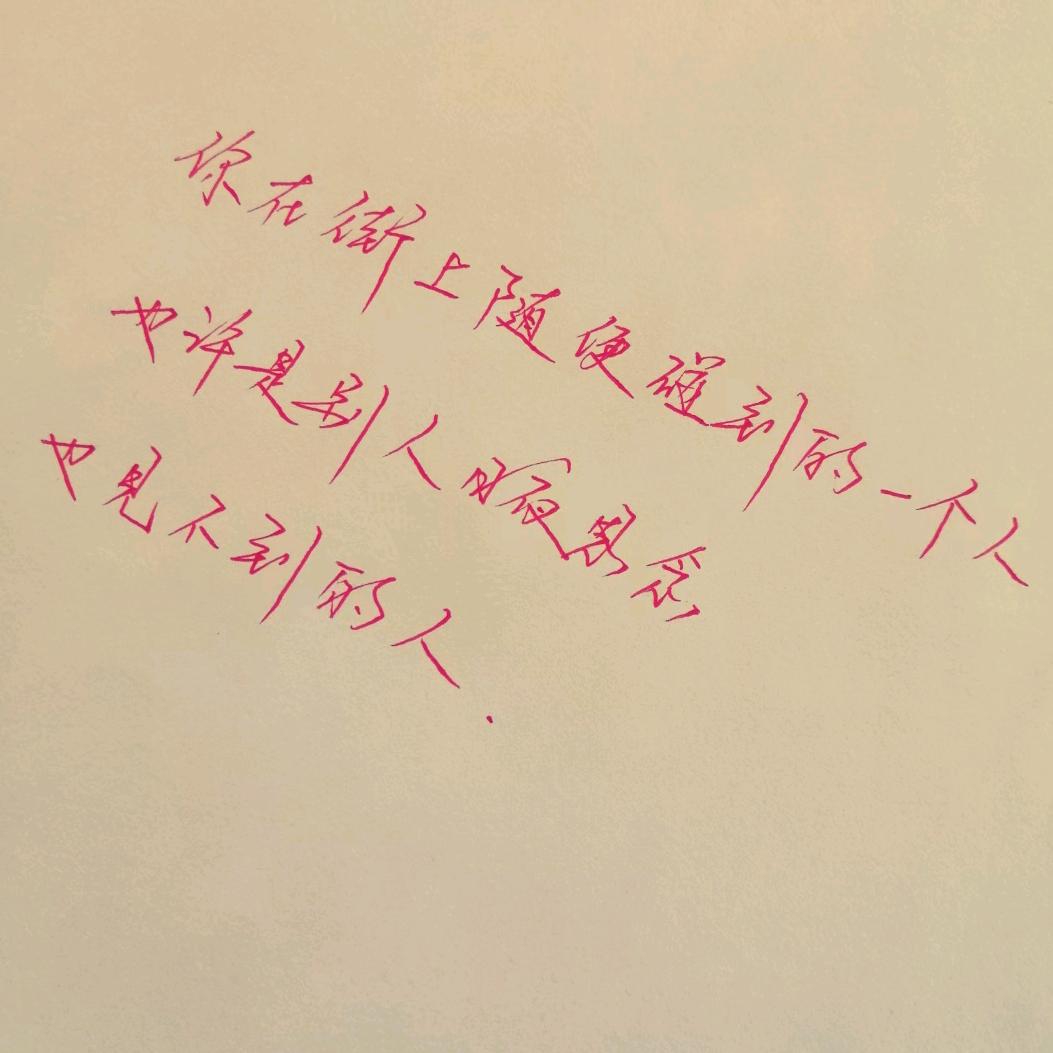 你在街上随便碰到的一个人
也许是别人日夜思念
也见不到的人.